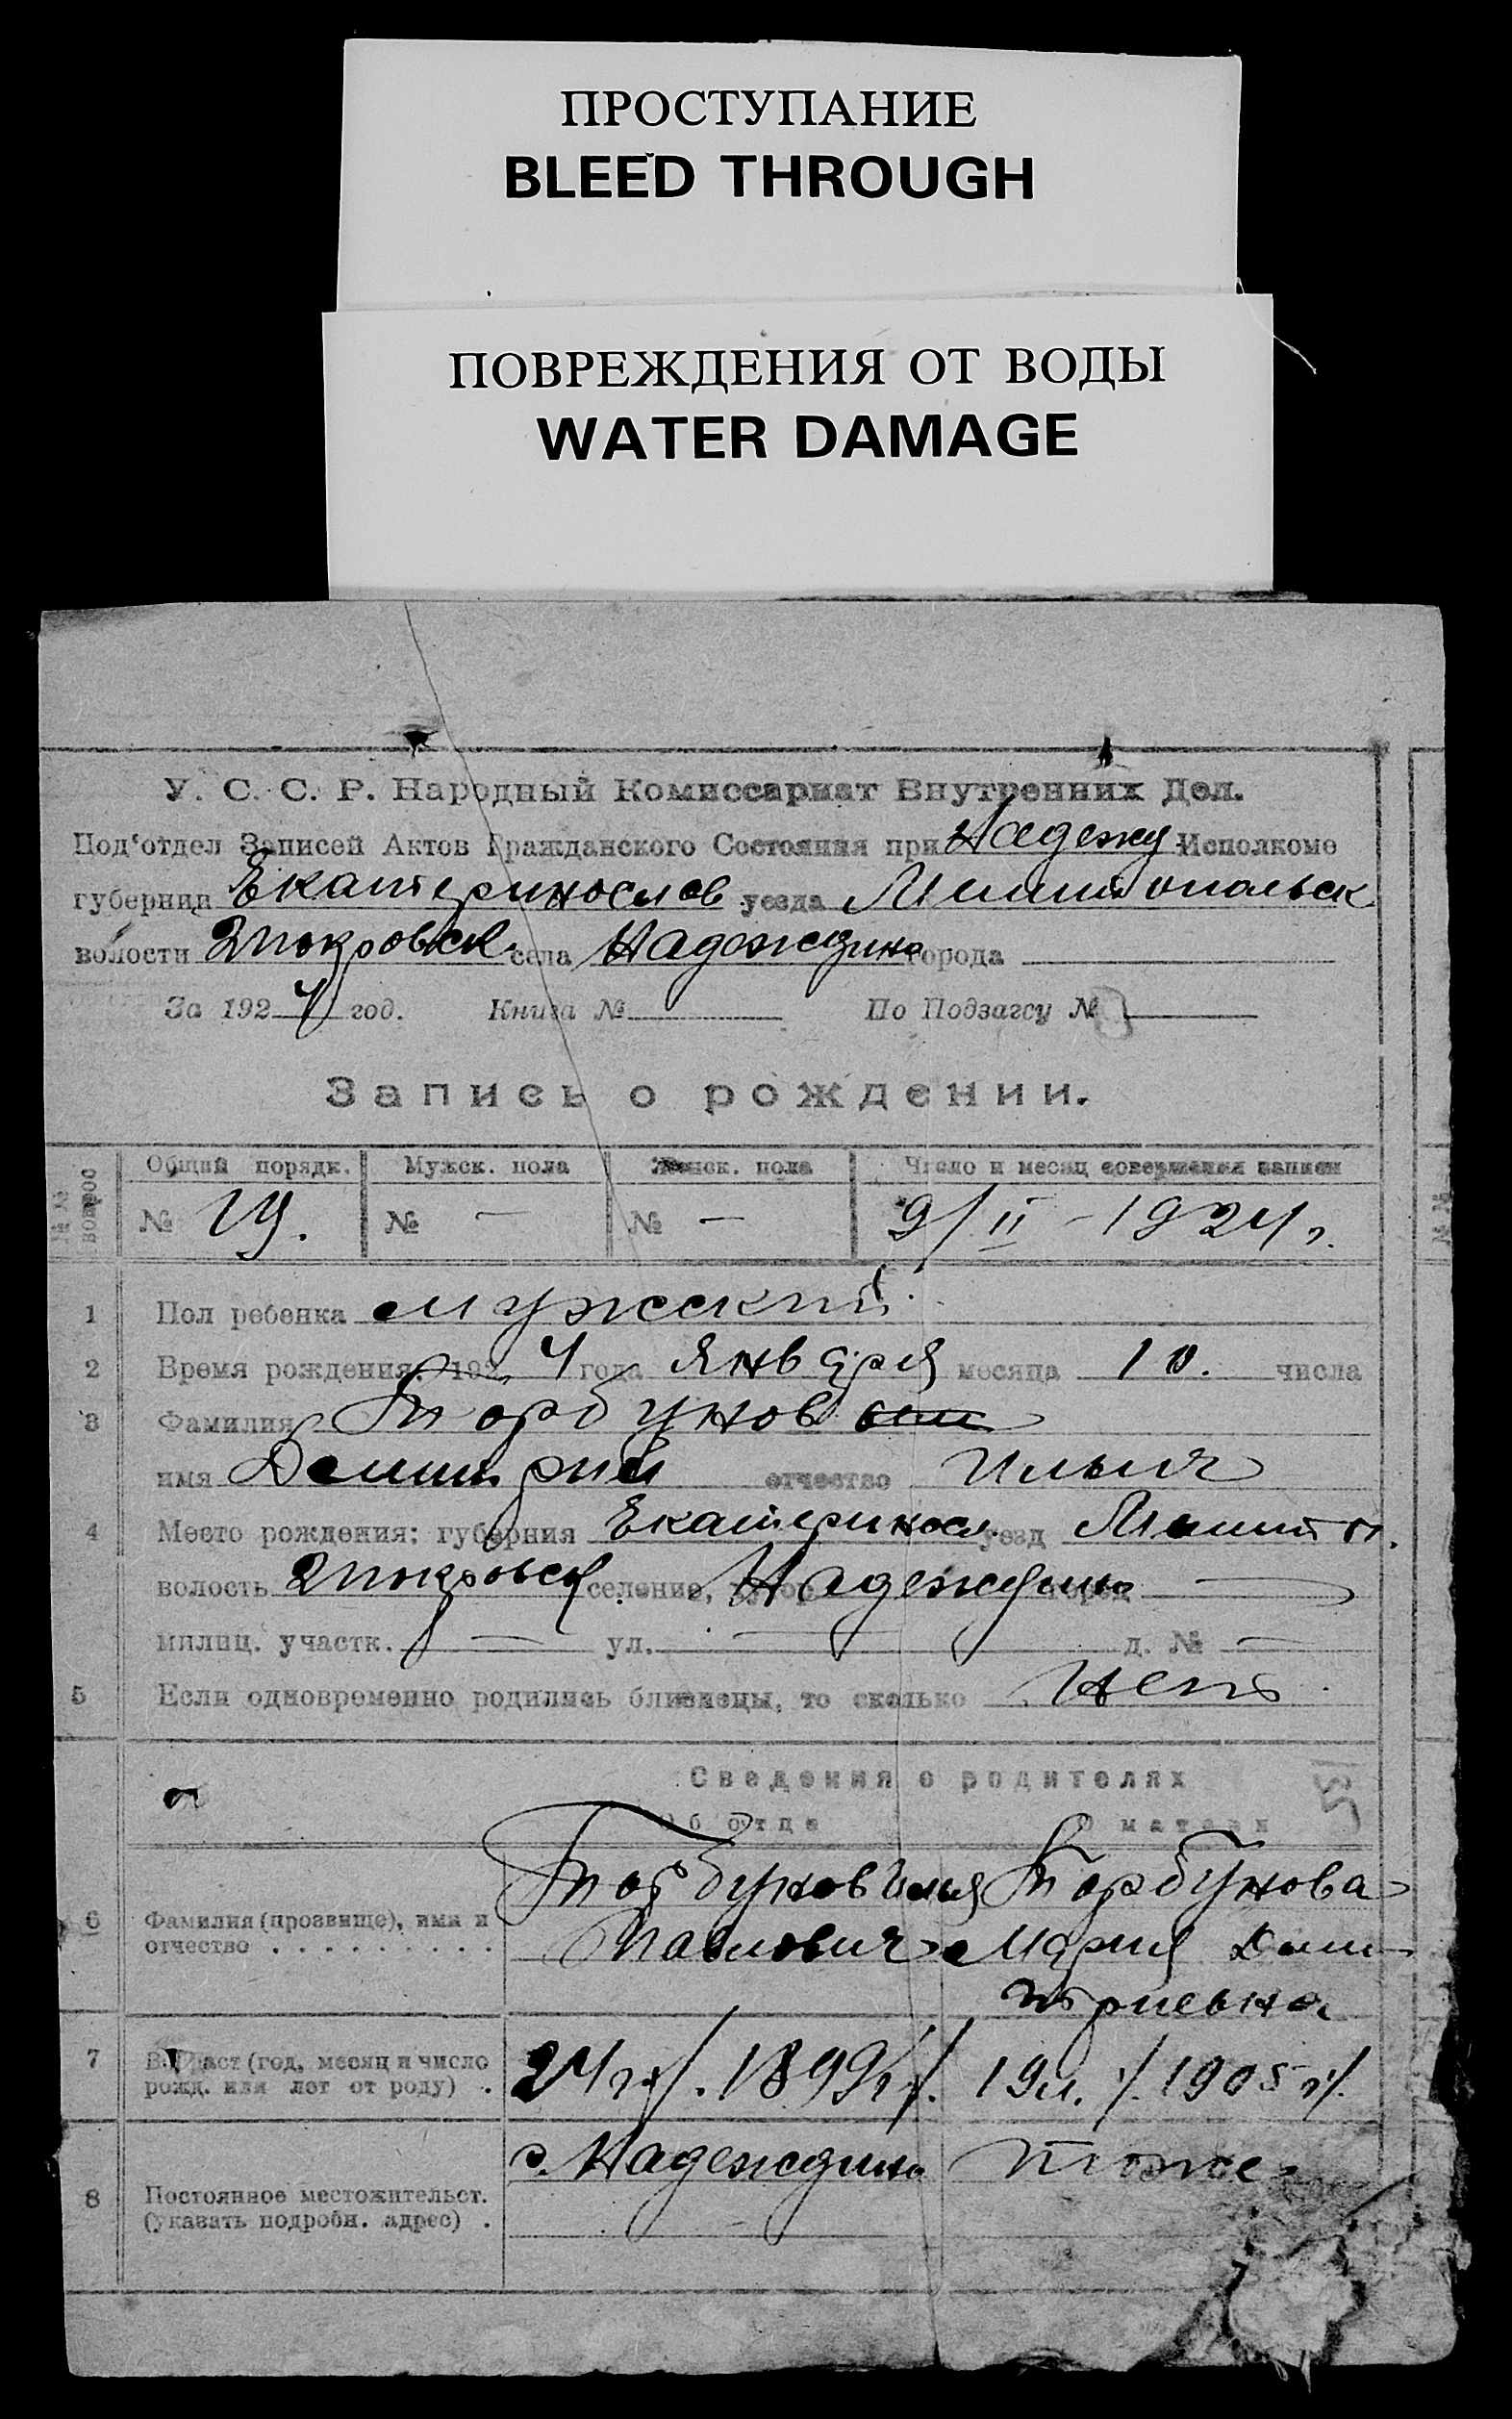 ПРОСТУПАНИЕ
BLEED THROUGH
ПОВРЕЖДЕНИЯ ОТ ВОДЫ
WATER DAMAGE
У. С. С. Р. Народный Комиссариат Внутренних Дел.
Под'отдел Записей Актов Гражданского Состояния при Надежд Исполкоме
губернии Екатеринослав уезда Мелитопольск
волости 2 покровск села Надеждино города
За 1924 год. Книга № По Подзагсу №
Запись о рождении.
№№ вопрос
Общий порядк. Мужск. пола Женск. пола Число и месяц совершения записи
№ 19. № — № — 9/II - 1924 г.
1 Пол ребенка мужеский
2 Время рождения: 1924 года января месяца 10. числа
3 Фамилия Торбунов
имя Демитрий отчество Ильич
4 Место рождения: губерния Екатериносл. уезд Мелитоп.
волость 2 покровск селение, хутор Надеждино город —
милиц. участк. — ул. — д. № —
5 Если одновременно родились близнецы, то сколько нет
Сведения о родителях
Об отце О матери
6 Фамилия (прозвище), имя и отчество . . . . . . . . .
Торбунов Илья Торбунова
Павлович Мария Деми-
триевна
7 Возраст (год, месяц и число рожд. или лет от роду) .
24 г./. 1899 г./. 19 л. ./. 1905 г./.
8 Постоянное местожительст. (указать подробн. адрес) .
с. Надеждино тоже